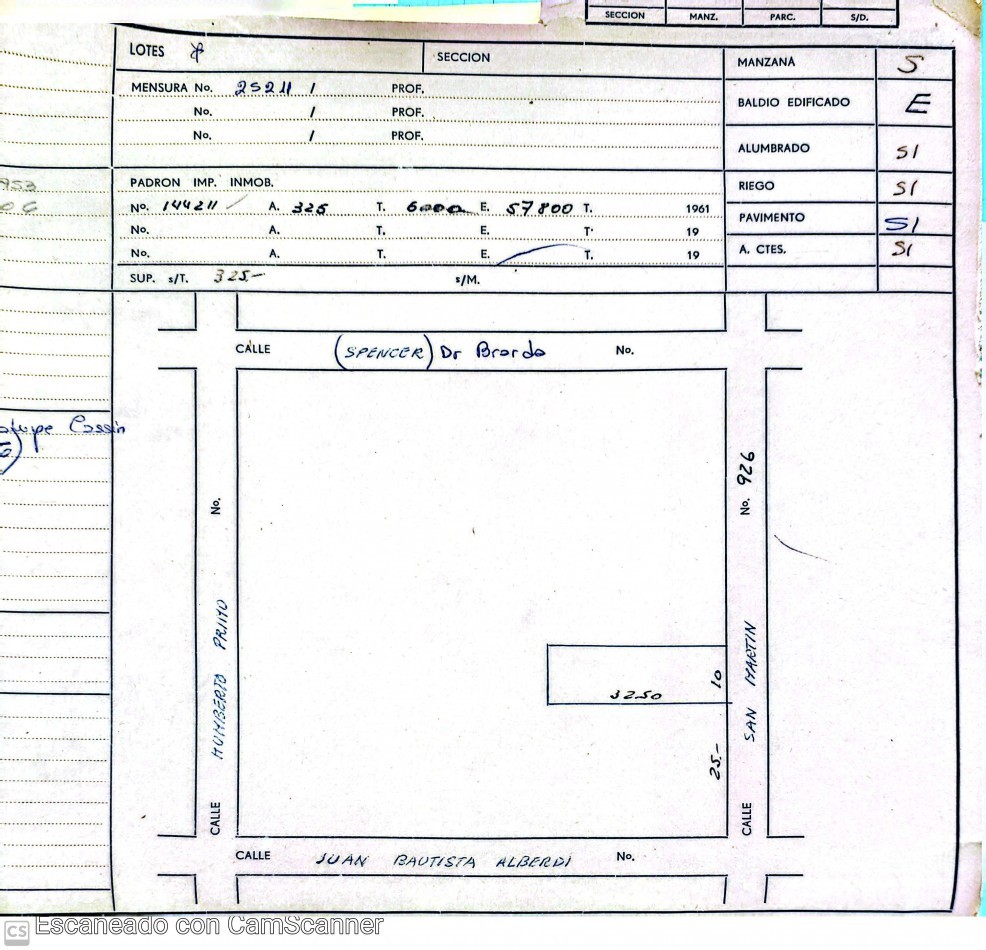 SECCION MANZ. PARC. S/D.
LOTES
SECCION
MANZANA S
MENSURA No. 25211 / PROF.
No. / PROF.
No. / PROF.
BALDIO EDIFICADO E
ALUMBRADO SI
PADRON IMP. INMOB.
No. 144211 A. 325 T. 6000 E. 57800 T. 1961
No. A. T. E. T. 19
No. A. T. E. T. 19
RIEGO SI
PAVIMENTO SI
A. CTES. SI
SUP. s/T. 325.- s/M.
953
CALLE (SPENCER) Dr Brardo No.
Cassin
CALLE HUMBERTO PRIMO No.
CALLE SAN MARTIN No. 926
3250
10
25.-
CALLE JUAN BAUTISTA ALBERDI No.
CS Escaneado con CamScanner